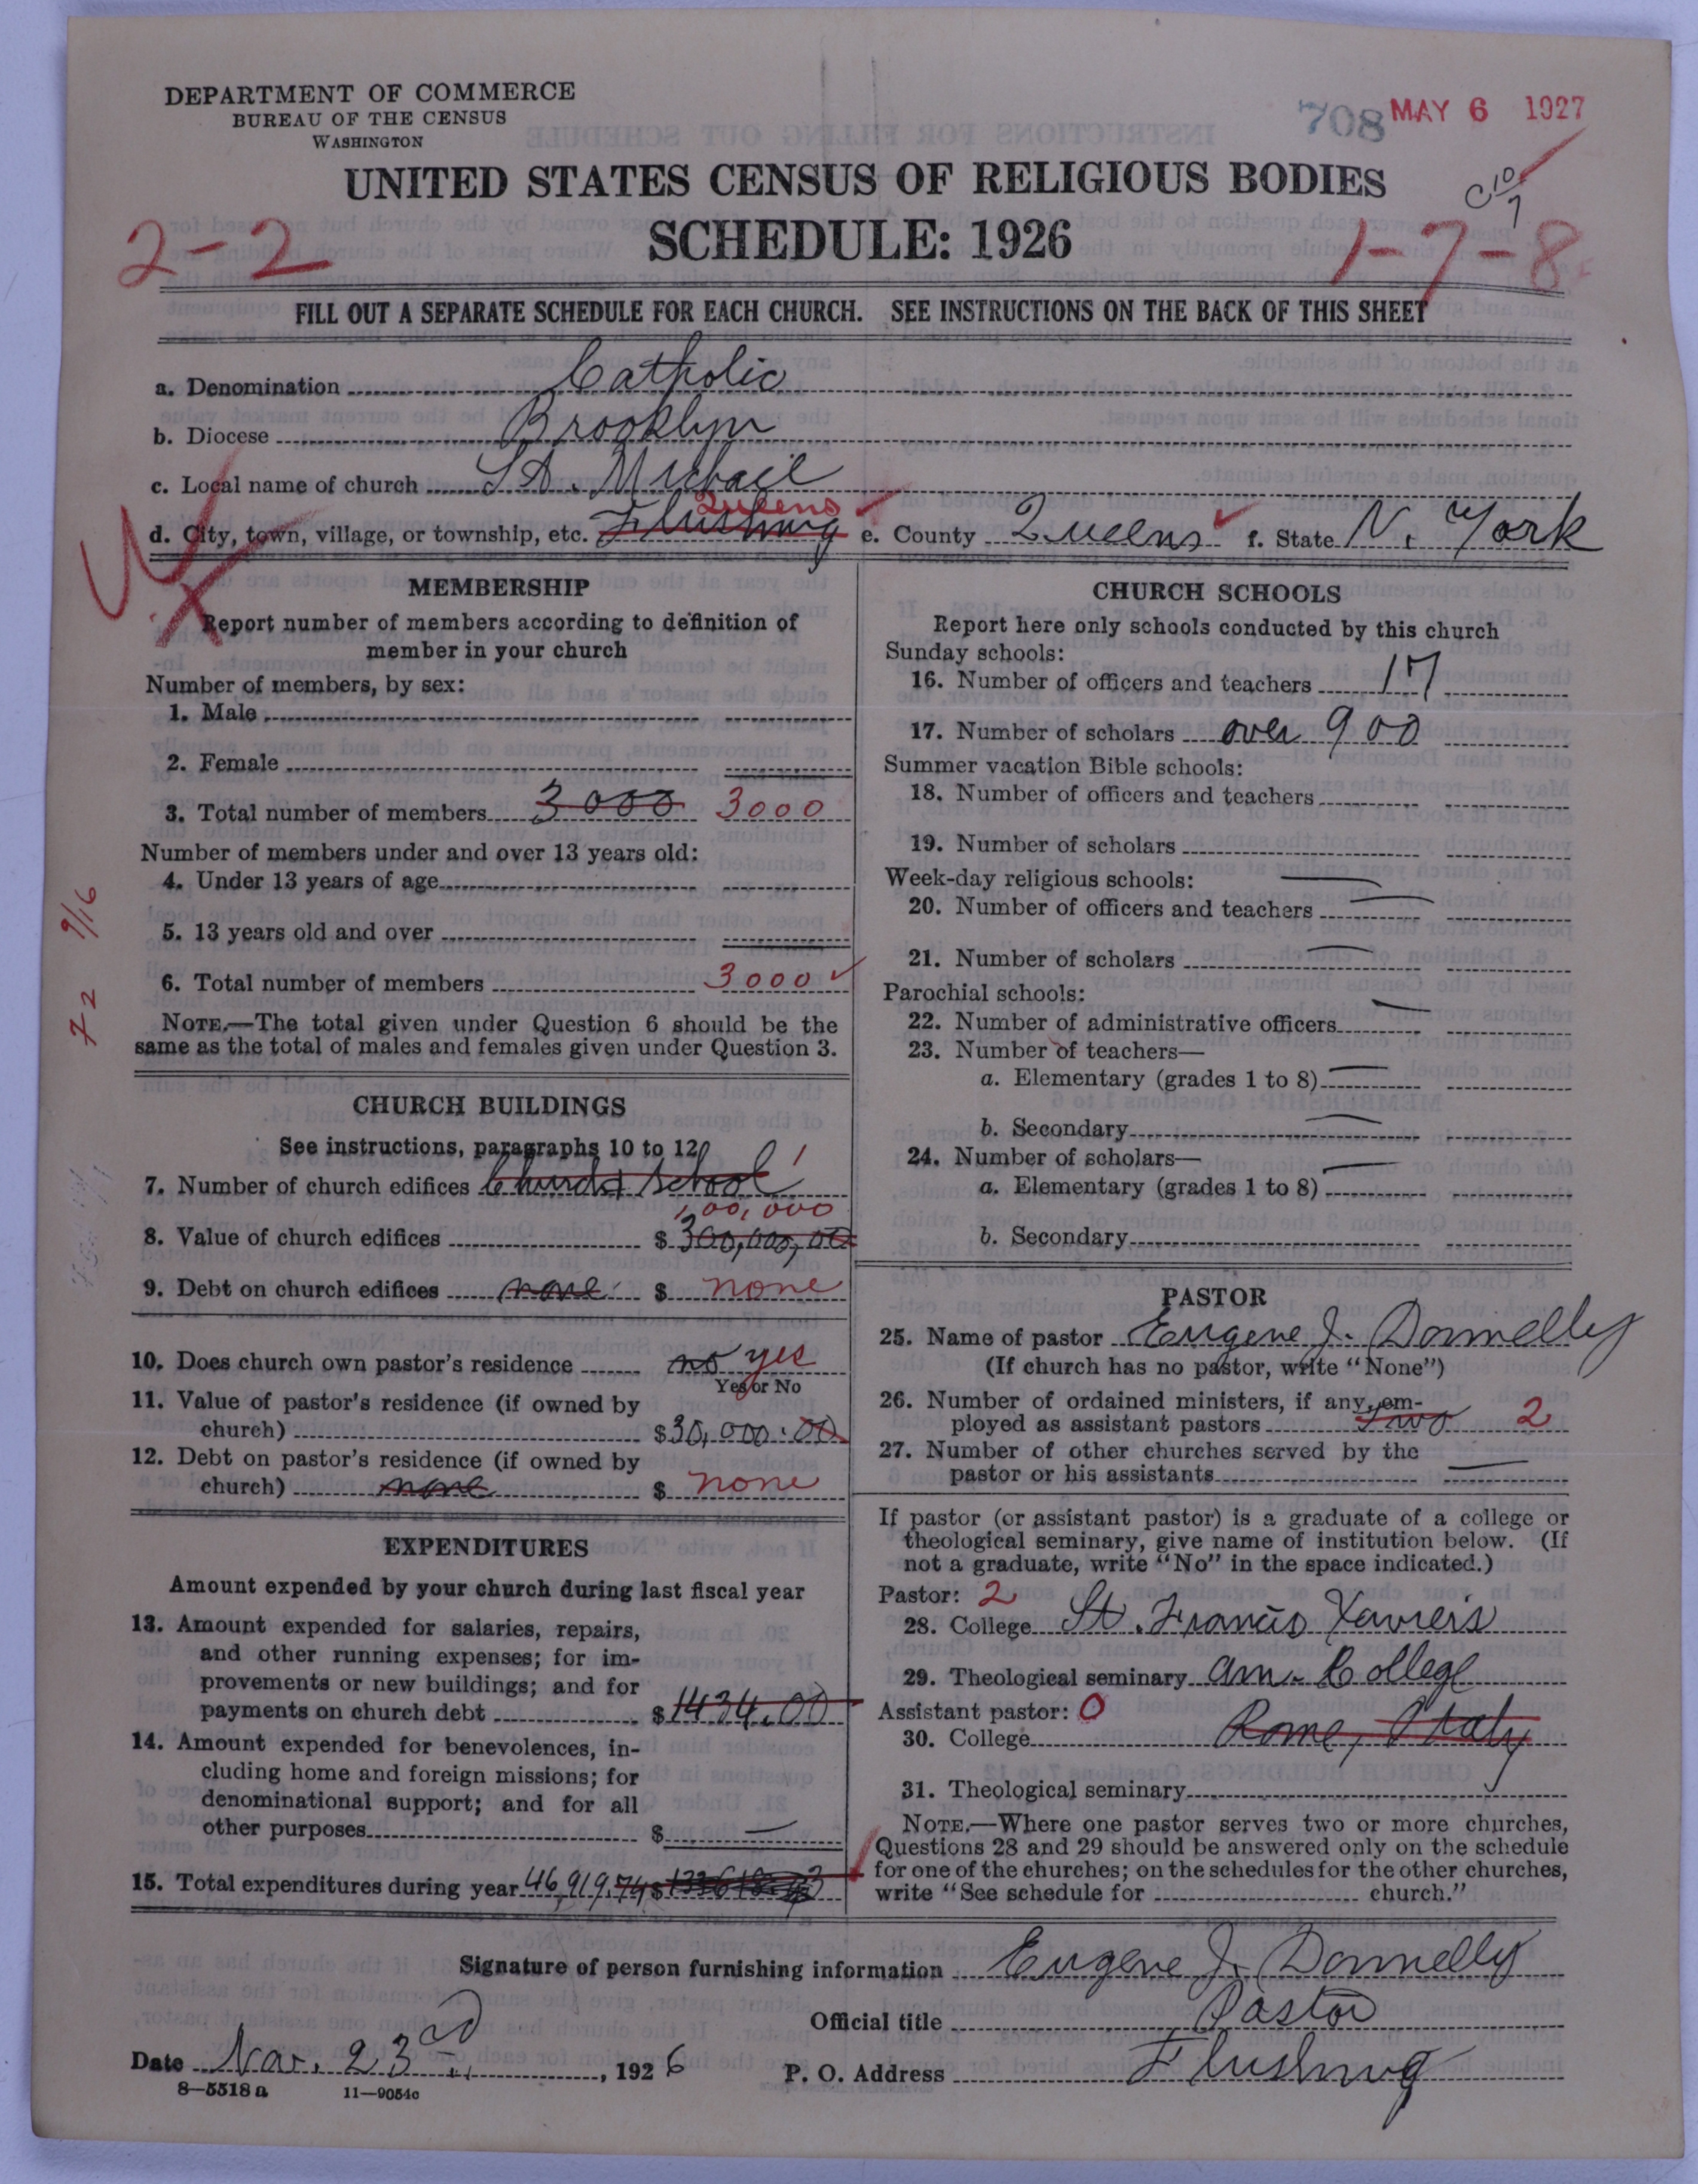 DEPARTMENT OF COMMERCE
BUREAU OF THE CENSUS
WASHINGTON
708 MAY 6 1927
UNITED STATES CENSUS OF RELIGIOUS BODIES
C 10/7
SCHEDULE: 1926
2-2
1-7-8
FILL OUT A SEPARATE SCHEDULE FOR EACH CHURCH. SEE INSTRUCTIONS ON THE BACK OF THIS SHEET
a. Denomination Catholic
b. Diocese Brooklyn
c. Local name of church St. Michael
Queens
d. City, town, village, or township, etc. Flushing e. County Queens f. State N. York
MEMBERSHIP
Report number of members according to definition of
member in your church
Number of members, by sex:
1. Male
2. Female
3. Total number of members 3000 3000
Number of members under and over 13 years old:
4. Under 13 years of age
5. 13 years old and over
6. Total number of members 3000
NOTE.—The total given under Question 6 should be the
same as the total of males and females given under Question 3.
72 9/16
CHURCH BUILDINGS
See instructions, paragraphs 10 to 12
7. Number of church edifices Church School 1
100,000
8. Value of church edifices $ 300,000,00
9. Debt on church edifices none $ none
10. Does church own pastor's residence no yes
Yes or No
11. Value of pastor's residence (if owned by
church) $ 30,000.00
12. Debt on pastor's residence (if owned by
church) none $ none
EXPENDITURES
Amount expended by your church during last fiscal year
13. Amount expended for salaries, repairs,
and other running expenses; for im-
provements or new buildings; and for
payments on church debt $ 1434.00
14. Amount expended for benevolences, in-
cluding home and foreign missions; for
denominational support; and for all
other purposes $ —
15. Total expenditures during year 46,919.74 $
CHURCH SCHOOLS
Report here only schools conducted by this church
Sunday schools:
16. Number of officers and teachers 17
17. Number of scholars over 900
Summer vacation Bible schools:
18. Number of officers and teachers
19. Number of scholars
Week-day religious schools: —
20. Number of officers and teachers —
21. Number of scholars —
Parochial schools:
22. Number of administrative officers —
23. Number of teachers—
a. Elementary (grades 1 to 8) —
b. Secondary —
24. Number of scholars—
a. Elementary (grades 1 to 8) —
b. Secondary
PASTOR
25. Name of pastor Eugene J. Donnelly
(If church has no pastor, write "None")
26. Number of ordained ministers, if any, em-
ployed as assistant pastors Two 2
27. Number of other churches served by the
pastor or his assistants —
If pastor (or assistant pastor) is a graduate of a college or
theological seminary, give name of institution below. (If
not a graduate, write "No" in the space indicated.)
Pastor: 2
28. College St. Francis Xavier's
29. Theological seminary Am. College
Assistant pastor: 0
30. College Rome, Italy
31. Theological seminary
NOTE.—Where one pastor serves two or more churches,
Questions 28 and 29 should be answered only on the schedule
for one of the churches; on the schedules for the other churches,
write "See schedule for church."
Signature of person furnishing information Eugene J. Donnelly
Official title Pastor
Date Nov. 23rd, 1926 P. O. Address Flushing
8—5518a 11—9054c